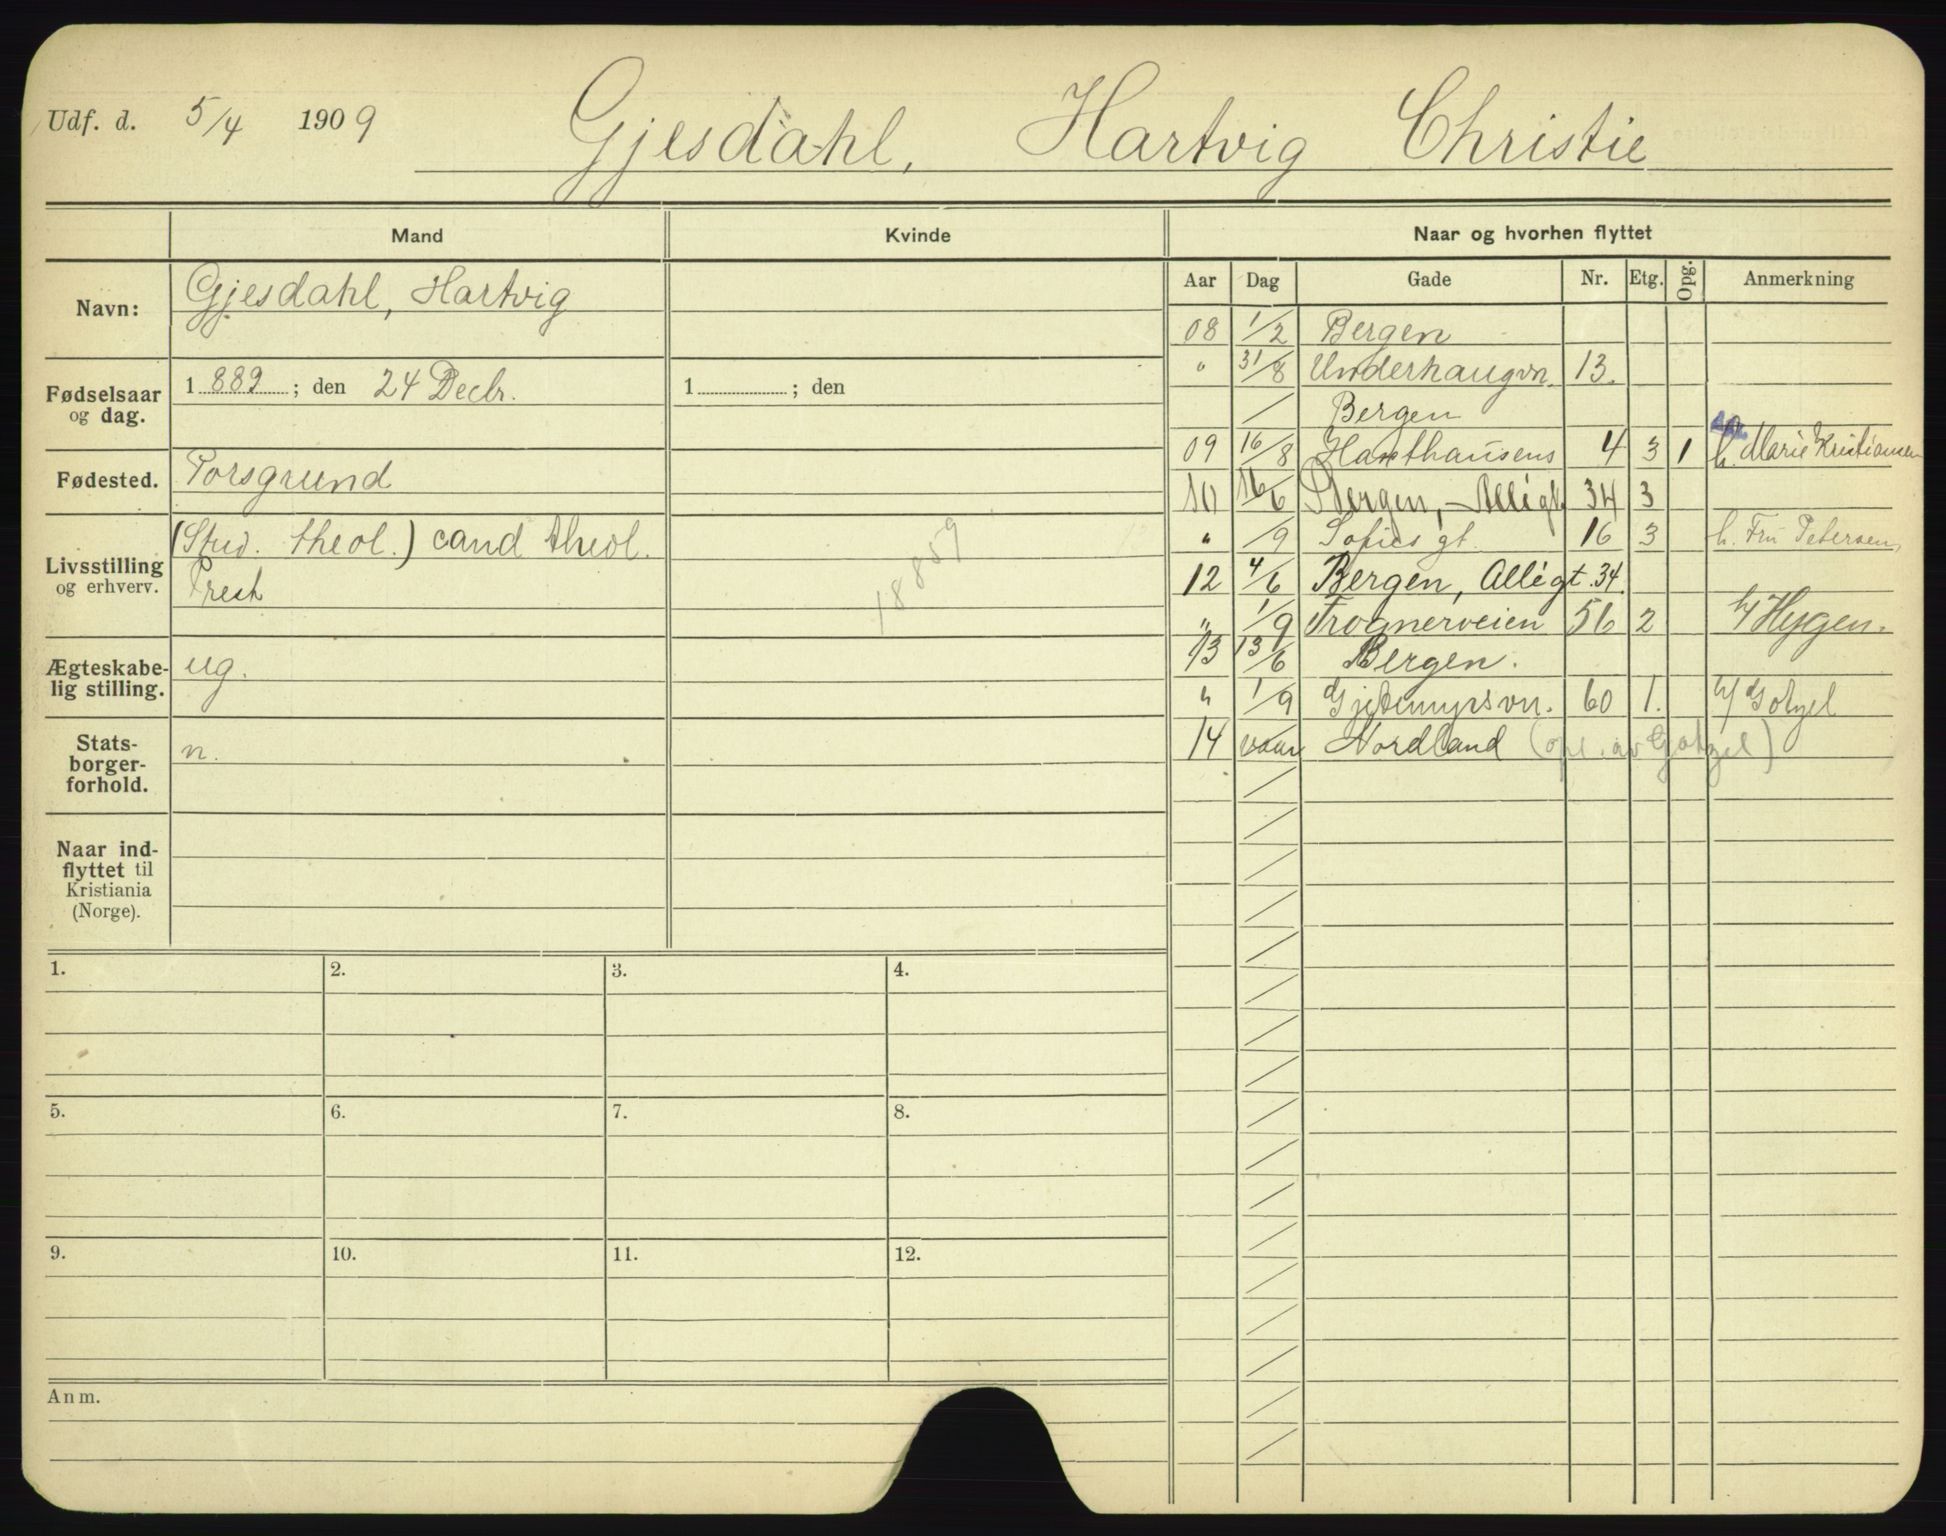 Udf. d. 5/4 1909 Gjesdahl, Hartvig Christie
Mand Kvinde Naar og hvorhen flyttet
Aar Dag Gade Nr. Etg. Opg. Anmerkning
Navn: Gjesdahl, Hartvig
Fødselsaar og dag. 1889; den 24 Decbr. 1 ; den
Fødested. Porsgrund
Livsstilling og erhverv. (Stud. theol.) cand theol.
Prest
18859
Ægteskabelig stilling. ug.
Statsborgerforhold. n.
Naar indflyttet til Kristiania (Norge).
08 1/2 Bergen
" 31/8 Underhaugvn. 13.
/ Bergen
09 16/8 Hansthausens 4 3 1 h. Marie Kristiansen
10 16/6 Bergen, Allégt. 34 3
" /9 Sofies gt. 16 3 h. Fru Petersen,
12 4/6 Bergen, Allégt. 34.
" 1/9 Frognerveien 56 2 h/ Hygen.
13 13/6 Bergen.
" 1/9 Gjetemyrsvn. 60 1. h/ Gotzel
14 vaar Nordland (opl. av Gotzel)
1. 2. 3. 4.
5. 6. 7. 8.
9. 10. 11. 12.
Anm.